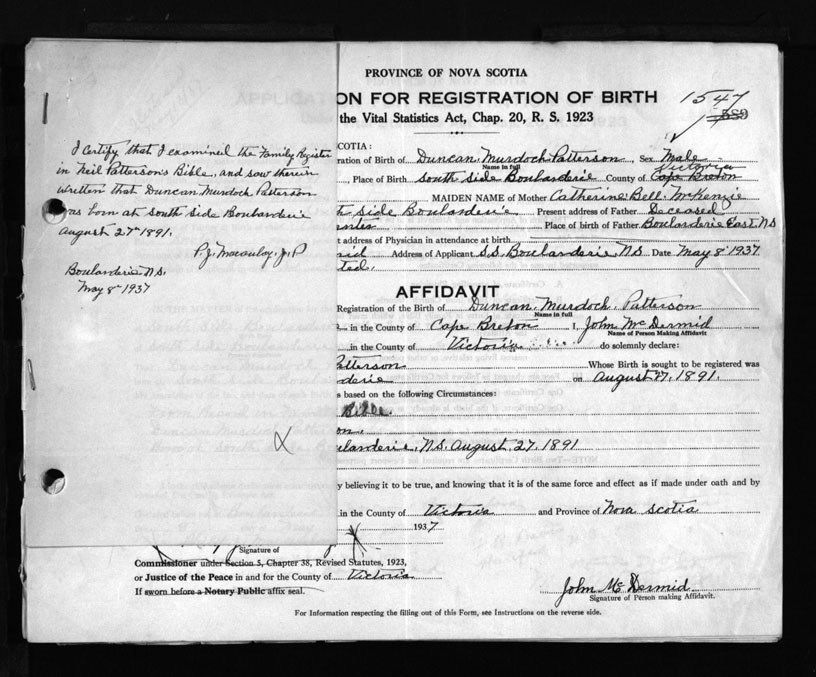 I certify that I examined the Family Register
in Neil Patterson's Bible, and saw therein
written that Duncan Murdoch Patterson
was born at South Side Boulardarie
August 27th 1891.
P.J. Macaulay, J.P
Boulardarie N.S.
May 8th 1937
PROVINCE OF NOVA SCOTIA
ON FOR REGISTRATION OF BIRTH
1547
the Vital Statistics Act, Chap. 20, R. S. 1923
COTIA:
ration of Birth of Duncan Murdoch Patterson, Sex Male
Name in full
Victoria
, Place of Birth South Side Boulardarie County of Cape Breton
MAIDEN NAME of Mother Catherine Bell McKenzie
Side Boulardarie Present address of Father Deceased
Place of birth of Father Boulardarie East N.S
t address of Physician in attendance at birth
Address of Applicant S.S. Boulardarie N.S. Date May 8th 1937
AFFIDAVIT
Registration of the Birth of Duncan Murdoch Patterson
Name in full
in the County of Cape Breton I, John McDermid
Name of Person Making Affidavit
in the County of Victoria do solemnly declare:
Patterson Whose Birth is sought to be registered was
on August 27, 1891.
s based on the following Circumstances:
Bible
N.S. August 27. 1891
y believing it to be true, and knowing that it is of the same force and effect as if made under oath and by
in the County of Victoria and Province of Nova Scotia
1937
Signature of
Commissioner under Section 5, Chapter 38, Revised Statutes, 1923,
or Justice of the Peace in and for the County of Victoria
If sworn before a Notary Public affix seal.
John McDermid
Signature of Person making Affidavit.
For Information respecting the filling out of this Form, see Instructions on the reverse side.